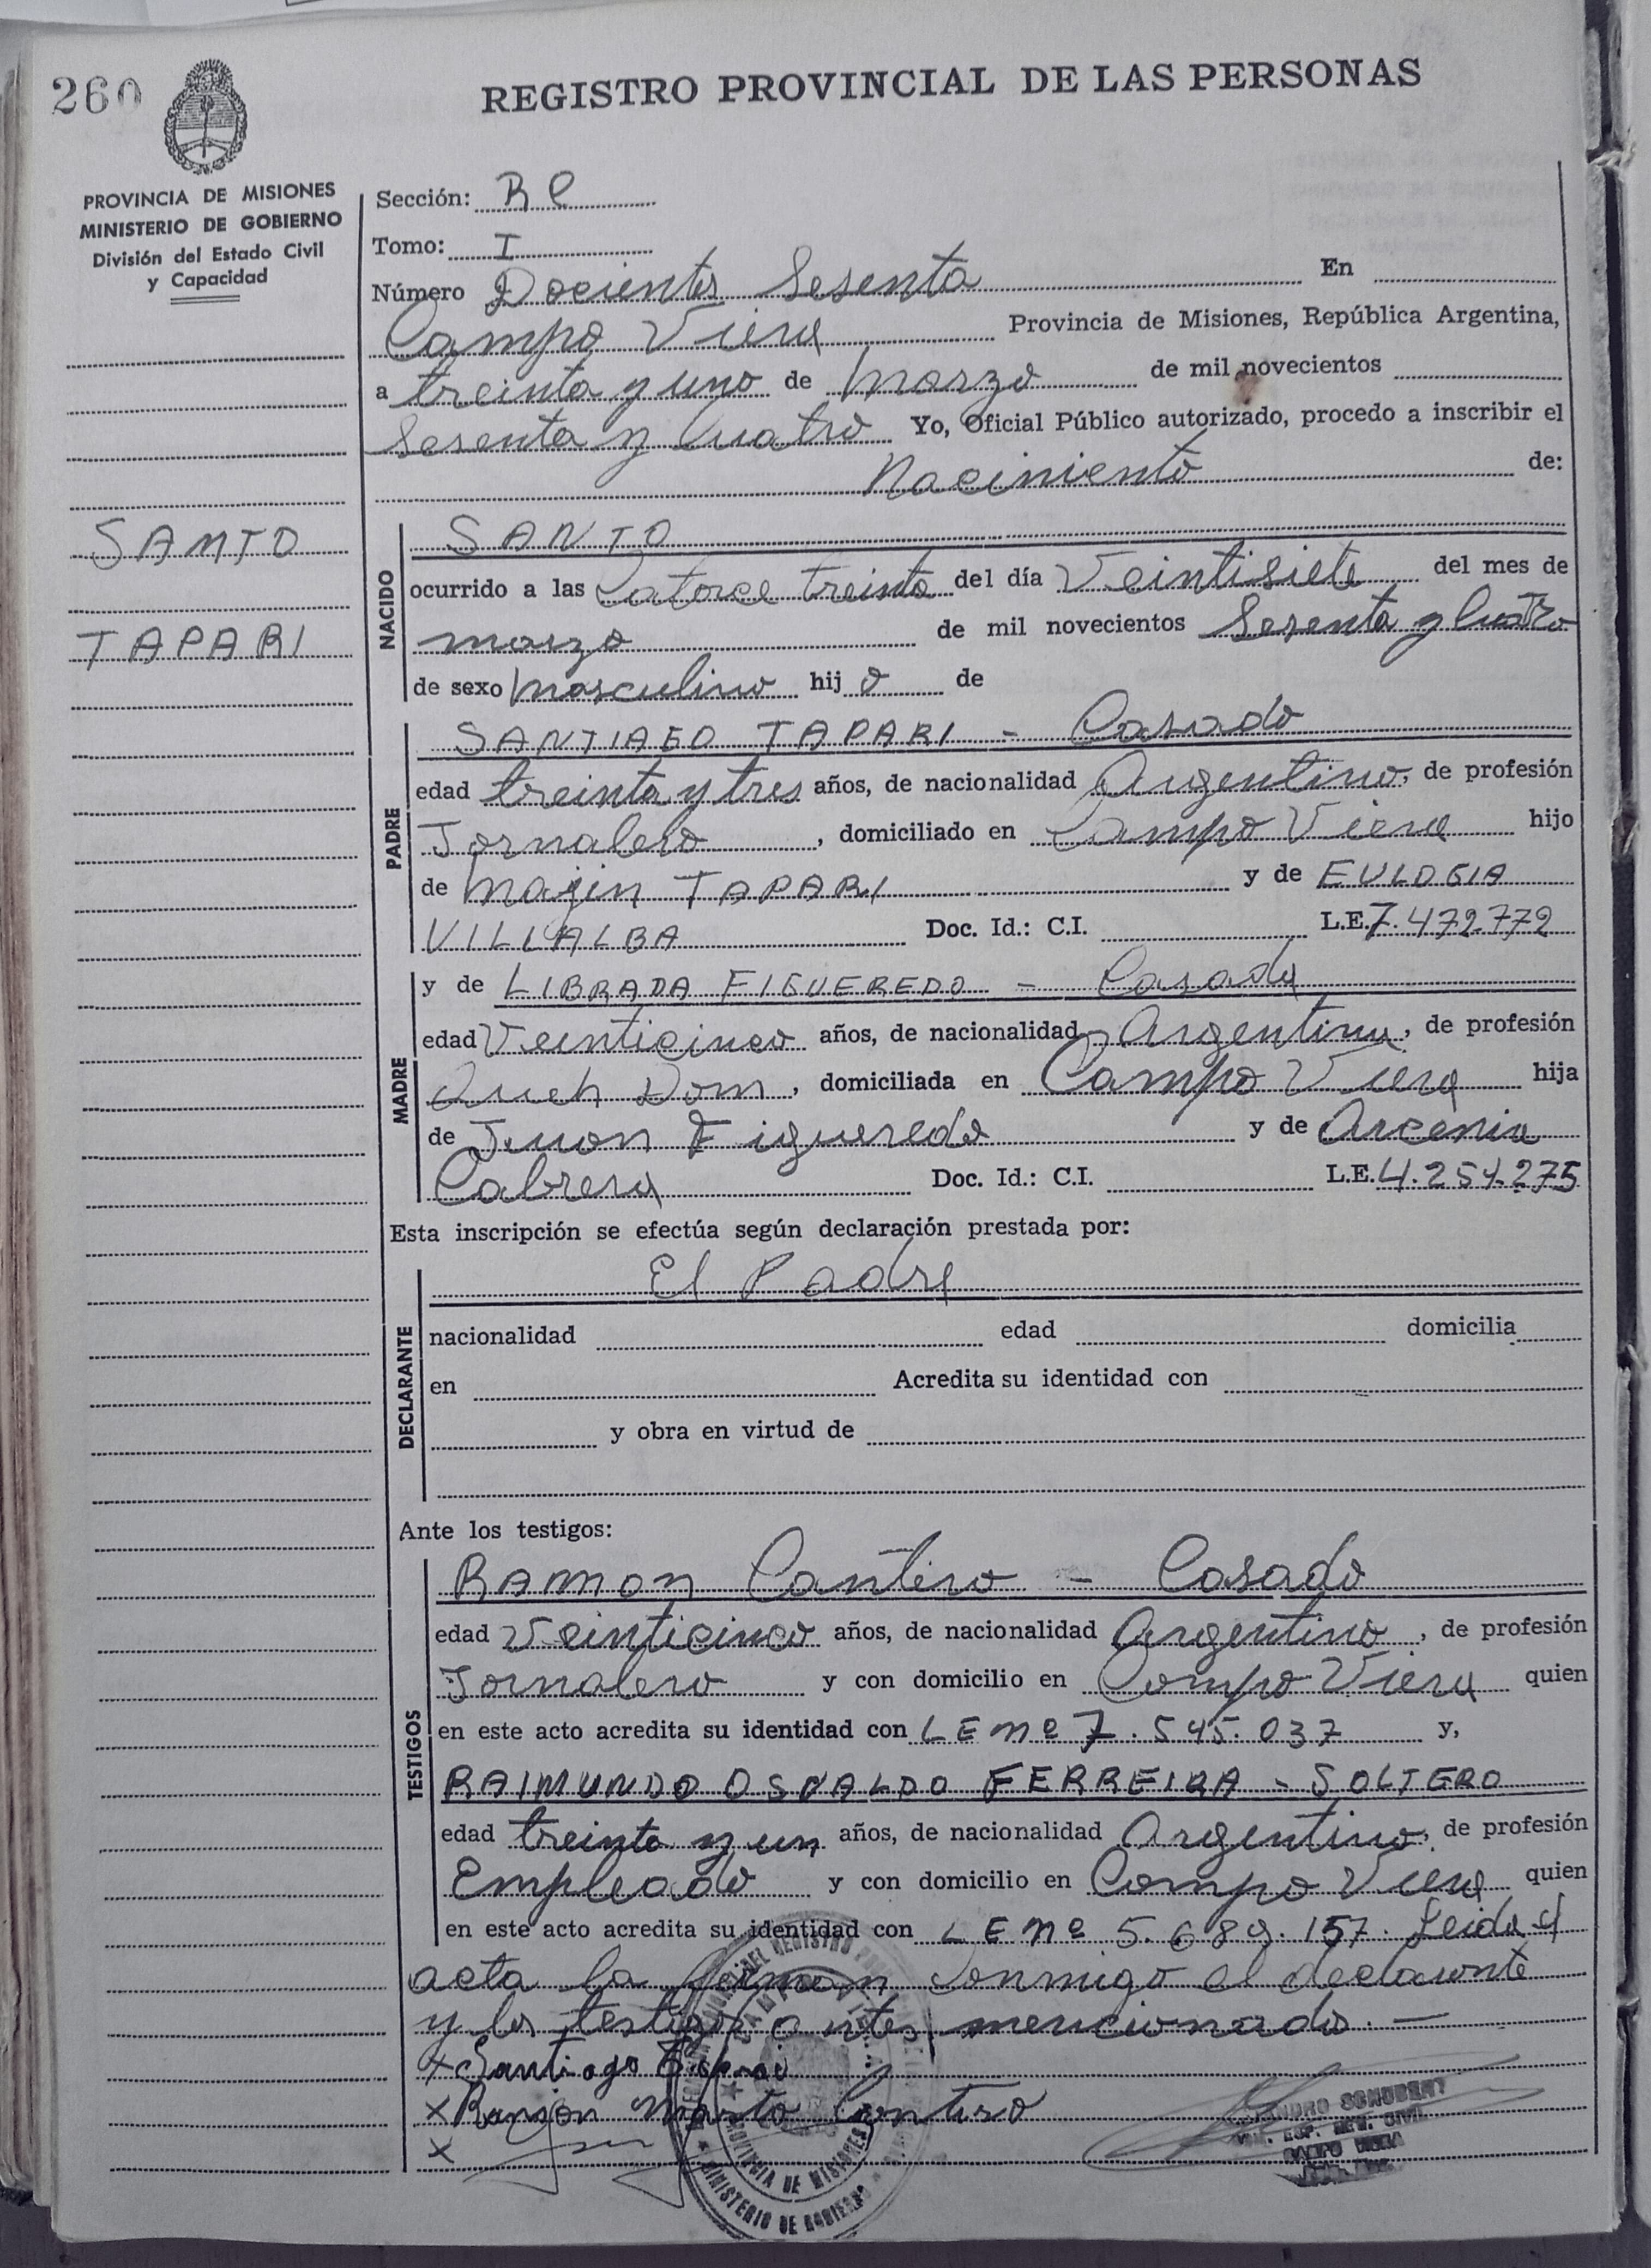 260
REGISTRO PROVINCIAL DE LAS PERSONAS
PROVINCIA DE MISIONES
MINISTERIO DE GOBIERNO
División del Estado Civil
y Capacidad
Sección: RC
Tomo: I
Número Docientos Sesenta En
Campo Viera Provincia de Misiones, República Argentina,
a treinta y uno de marzo de mil novecientos
Sesenta y Cuatro Yo, Oficial Público autorizado, procedo a inscribir el
Nacimiento de:
SANTO
TAPARI
NACIDO
SANTO
ocurrido a las Catorce treinta del día Veintisiete del mes de
marzo de mil novecientos Sesenta y Cuatro
de sexo masculino hijo de
PADRE
SANTIAGO TAPARI - Casado
edad treinta y tres años, de nacionalidad Argentino, de profesión
Jornalero, domiciliado en Campo Viera hijo
de Majin TAPARI y de EULOGIA
VILLALBA Doc. Id.: C.I. L.E. 7.472.772
MADRE
y de LIBRADA FIGUEREDO - Casada
edad Veinticinco años, de nacionalidad Argentina, de profesión
Dom, domiciliada en Campo Viera hija
de Juan Figueredo y de Arcenia
Cabrera Doc. Id.: C.I. L.E. 4.254.275
Esta inscripción se efectúa según declaración prestada por:
DECLARANTE
El Padre
nacionalidad edad domicilia
en Acredita su identidad con
y obra en virtud de
Ante los testigos:
TESTIGOS
RAMON Cantero - Casado
edad Veinticinco años, de nacionalidad Argentino, de profesión
Jornalero y con domicilio en Campo Viera quien
en este acto acredita su identidad con LE Nº 7.545.037 y,
RAIMUNDO OSVALDO FERREIRA - SOLTERO
edad treinta y un años, de nacionalidad Argentino, de profesión
Empleado y con domicilio en Campo Viera quien
en este acto acredita su identidad con LE Nº 5.689.157. Leida el
acta la firman Conmigo el declarante
y los testigos antes mencionado. -
x Santiago Tapari
x Ramon Cantero
x
SCHUBERT
CAMPO VIERA
PROVINCIA DE MISIONES
MINISTERIO DE GOBIERNO